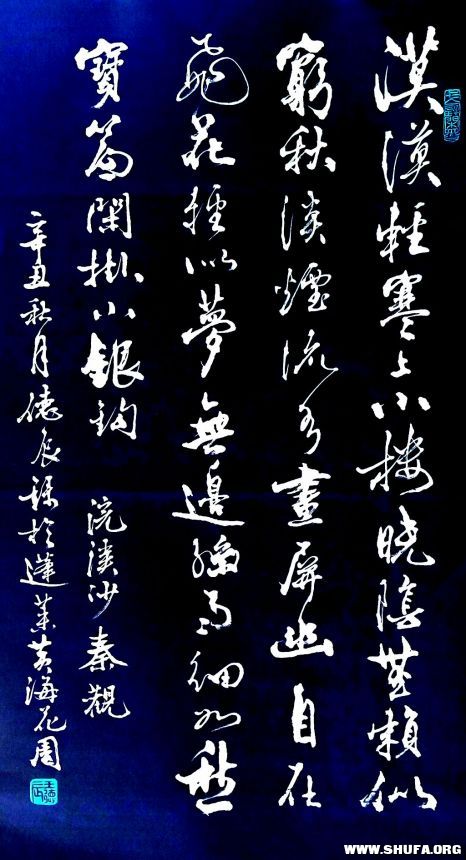 漠漠輕寒上小樓曉陰無賴似
窮秋淡煙流水畫屏幽自在
飛花輕似夢無邊絲雨細如愁
寶簾閑掛小銀鉤 浣溪沙秦觀
辛丑秋月德辰錄於蓬萊黃海花園
WWW.SHUFA.ORG